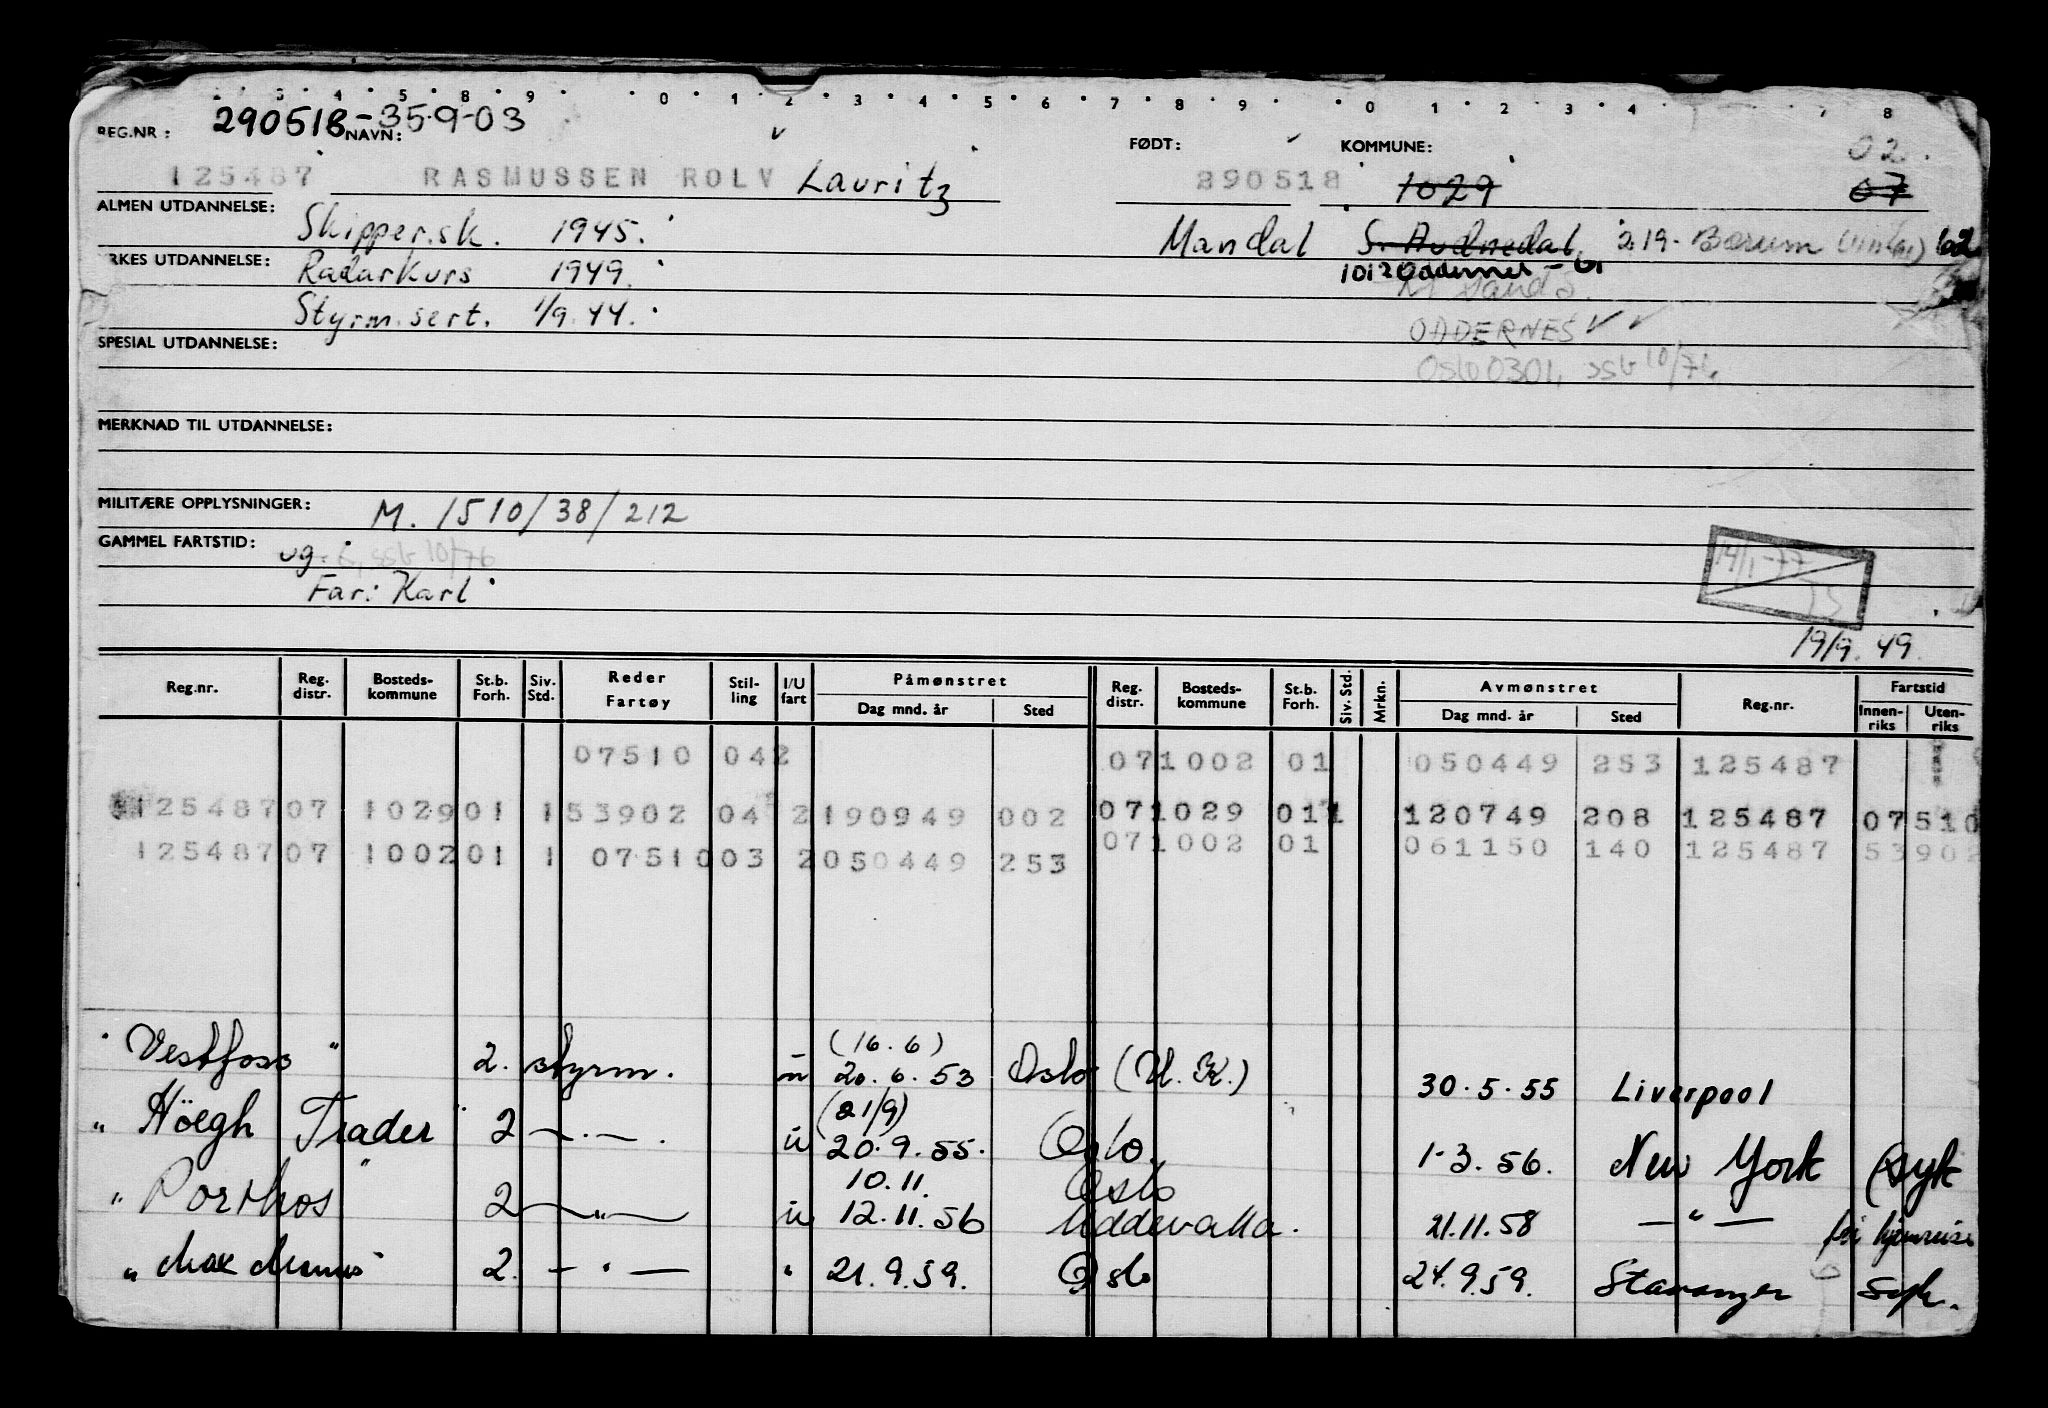 2 3 4 5 8 9 0 1 2 3 4 5 6 7 8 9 0 1 2 3 4 7 8
REG.NR: 290518-35.9-03 NAVN: FØDT: KOMMUNE: 02.
125487 RASMUSSEN ROLV Lauritz 290518 1029 07
ALMEN UTDANNELSE: Skipper.sk. 1945. Mandal S. Audnedal 219- Bærum 62
YRKES UTDANNELSE: Radarkurs 1949. 1012 Oddernes - 01
Styrm.sert. 1/9.44. Kr sand S.
SPESIAL UTDANNELSE: ODDERNES
Oslo 0301, ssb 10/76
MERKNAD TIL UTDANNELSE:
MILITÆRE OPPLYSNINGER: M. 1510/38/212
GAMMEL FARTSTID: ug. ssb 10/76 14/1-77
Far: Karl
19/9.49.
Reg.nr. Reg. distr. Bosteds-kommune St.b. Forh. Siv. Std. Reder Fartøy Stil-ling I/U fart Påmønstret Dag mnd. år Sted Reg. distr. Bosteds-kommune St.b. Forh. Siv. Std. Mrkn. Avmønstret Dag mnd. år Sted Reg.nr. Fartstid Innen-riks Uten-riks
07510 042 071002 01 050449 253 125487
125487 07 1029 01 1 53902 04 2 190949 002 071029 01 1 120749 208 125487 07510
125487 07 1002 01 1 07510 03 2 050449 253 071002 01 061150 140 125487 53902
(16.6)
" Vestfoss " 2. styrm. u 20.6.53 Oslo (U.K.) 30.5.55 Liverpool
(21/9)
" Höegh Trader " 2 —.—. u 20.9.55. Oslo. 1-3.56. New York (syk
10.11. Oslo
" Porthos " 2 —"— u 12.11.56 Uddevalla. 21.11.58 —"— fri hjemreise
" Max Manus 2. —"— " 21.9.59. Oslo 24.9.59. Stavanger syk.